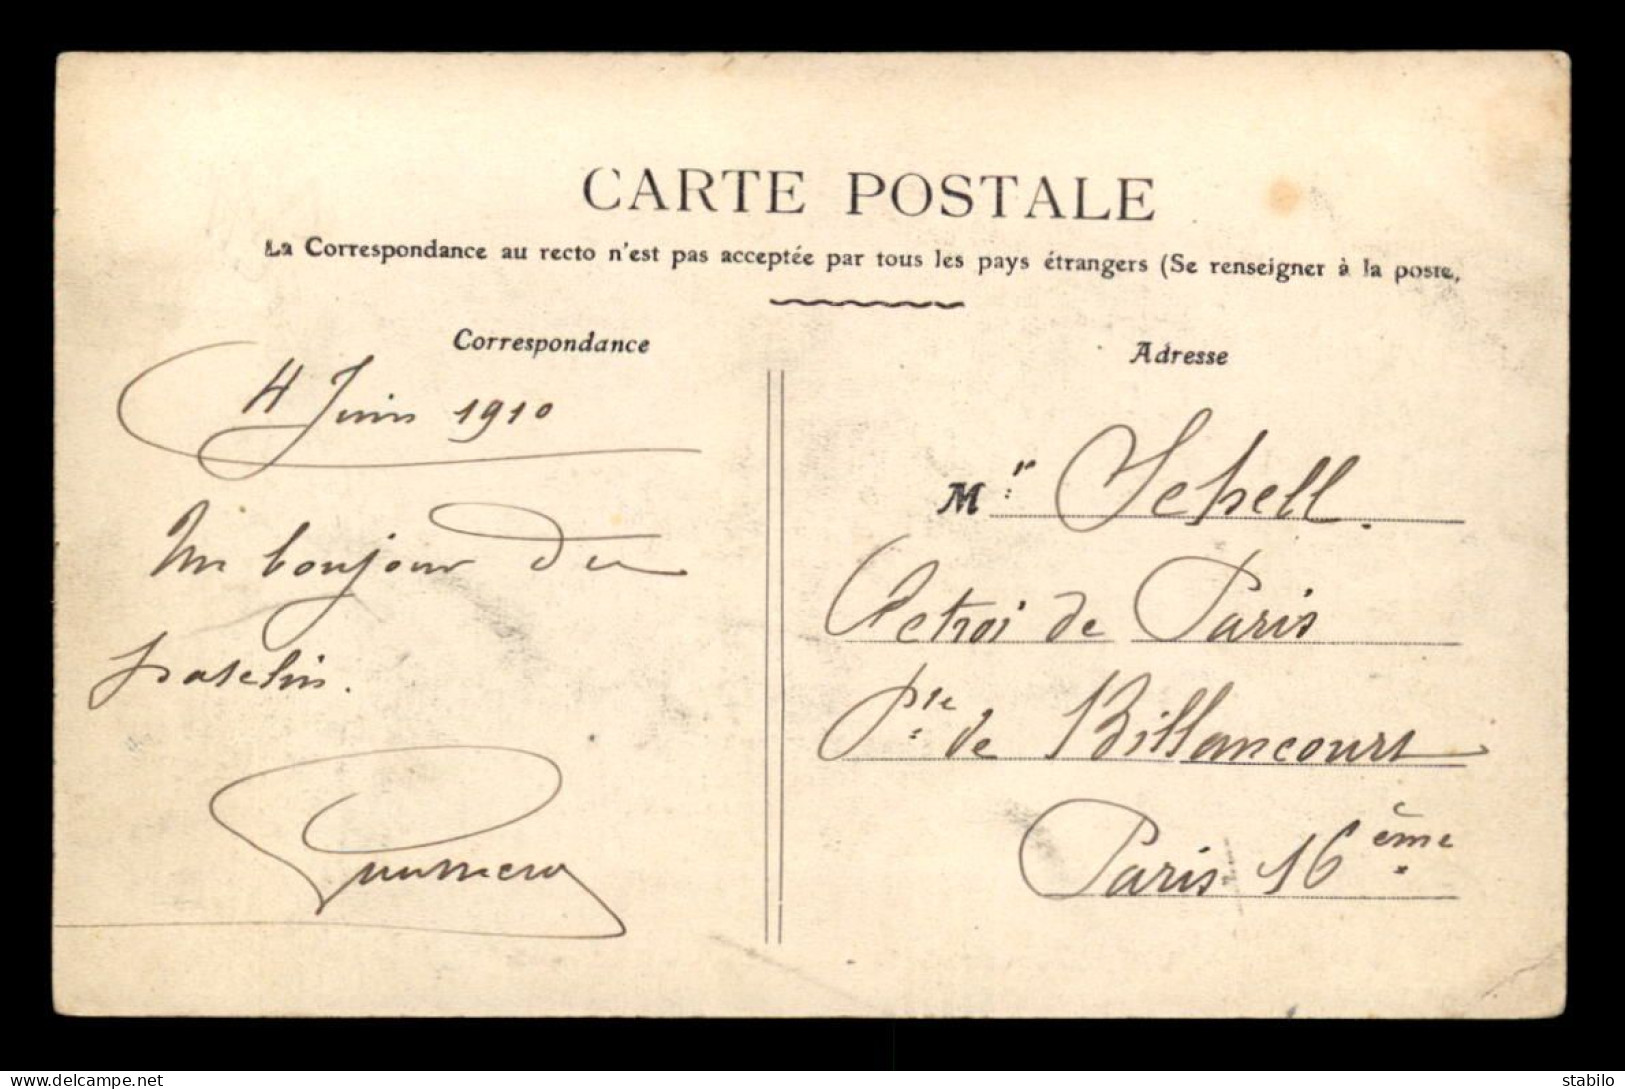 CARTE POSTALE
La Correspondance au recto n'est pas acceptée par tous les pays étrangers (Se renseigner à la poste,
Correspondance
4 Juin 1910
Un bonjour du
patelin.
Adresse
Mr Schell.
Octroi de Paris
Pte de Billancourt
Paris 16ème
delcampe.net
stabilo